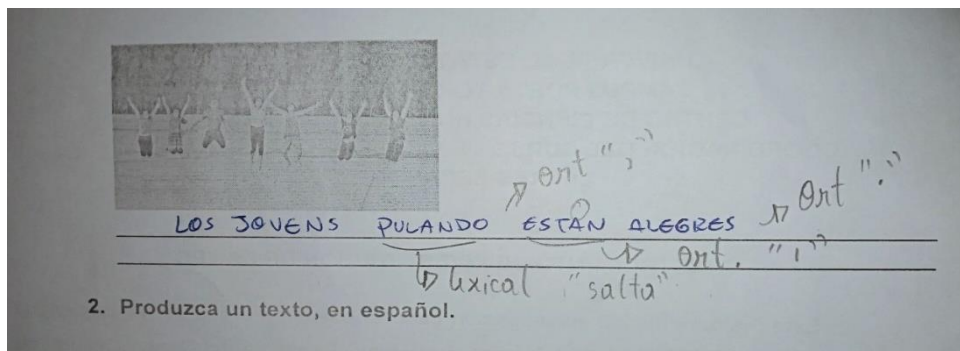 Ort ";"
Ort "."
LOS JOVENS PULANDO ESTÁN ALEGRES
Ort. "´"
lexical "salta"
2. Produzca un texto, en español.